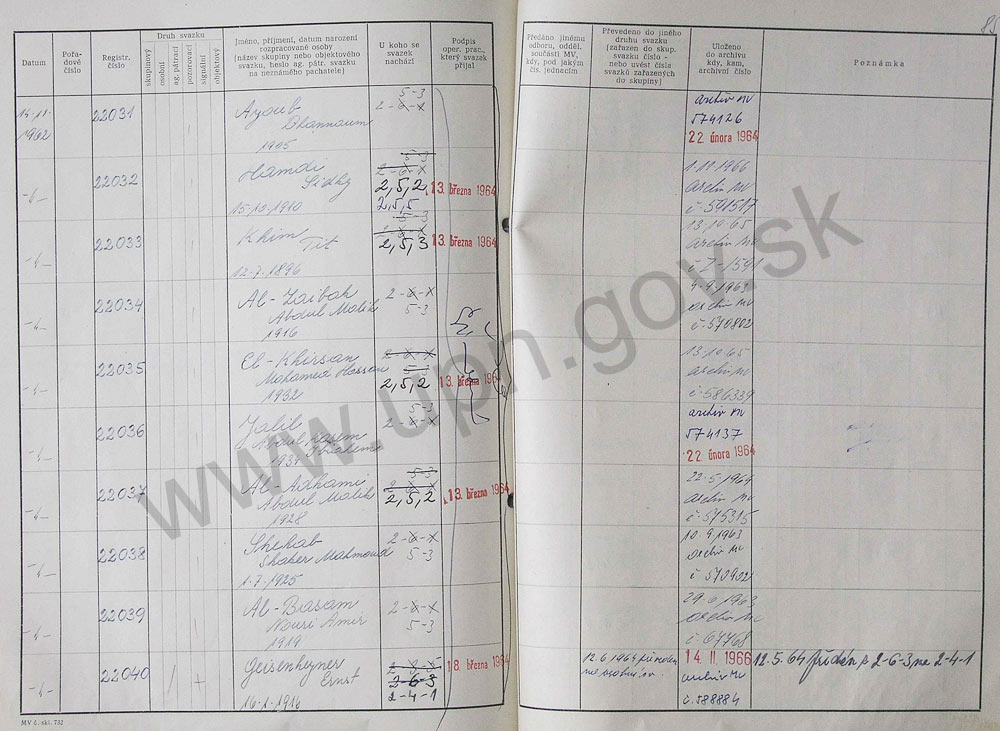 85
Datum
Pořa-
dové
číslo
Registr.
číslo
Druh svazku
skupinový
osobní
ag. pátrací
pozorovací
signální
objektový
Jméno, příjmení, datum narození
rozpracované osoby
(název skupiny nebo objektového
svazku, heslo ag. pátr. svazku
na neznámého pachatele)
U koho se
svazek
nachází
Podpis
oper. prac.,
který svazek
přijal
Předáno jinému
odboru, odděl.
součásti MV,
kdy, pod jakým
čís. jednacím
Převedeno do jiného
druhu svazku
(zařazen do skup.
svazku číslo -
nebo uvést čísla
svazků zařazených
do skupiny)
Uloženo
do archivu
kdy, kam,
archivní číslo
Poznámka
15.11.
1962
22031
Ayoub
Ghannoum
1905
5-3
2-6-x
archiv MV
574126
22. února 1964
22032
Hamdi
Sidky
15.10.1910
2,5,2
2,5,5
13. března 1964
1.11.1966
archiv MV
č-591517
22033
Khim
Tit
12.7.1896
2,5,3
13. března 1964
13.10.65
archiv MV
č-Z-1591
22034
Al-Zaibak
Abdul Malik
1916
2-6-x
5-3
4.9.1963
archiv MV
č-570802
22035
El-Khirsan
Mohamed Hassan
1932
2,5,2
13. března 1964
13.10.65
archiv MV
č-586339
22036
Jalil
Abdul
1937
5-3
2-6-x
archiv MV
574137
22. února 1964
22037
Al-Adhami
Abdul Malik
1928
5-3
2,5,2
13. března 1964
22.5.1964
archiv MV
č-575315
22038
Shehab
Shaker Mahmoud
1.7.1925
2-6-x
5-3
10.9.1963
archiv MV
č-570902
22039
Al-Basam
Nouri Amir
1919
2-6-x
5-3
29.6.1963
archiv MV
22040
Geisenheyner
Ernst
16.1.1916
2-6-3
2-4-1
18. března 1964
12.6.1964
14. II. 1966
archiv MV
č.588884
12.5.64 2-6-3 na 2-4-1
MV č. skl. 732
www.upn.gov.sk